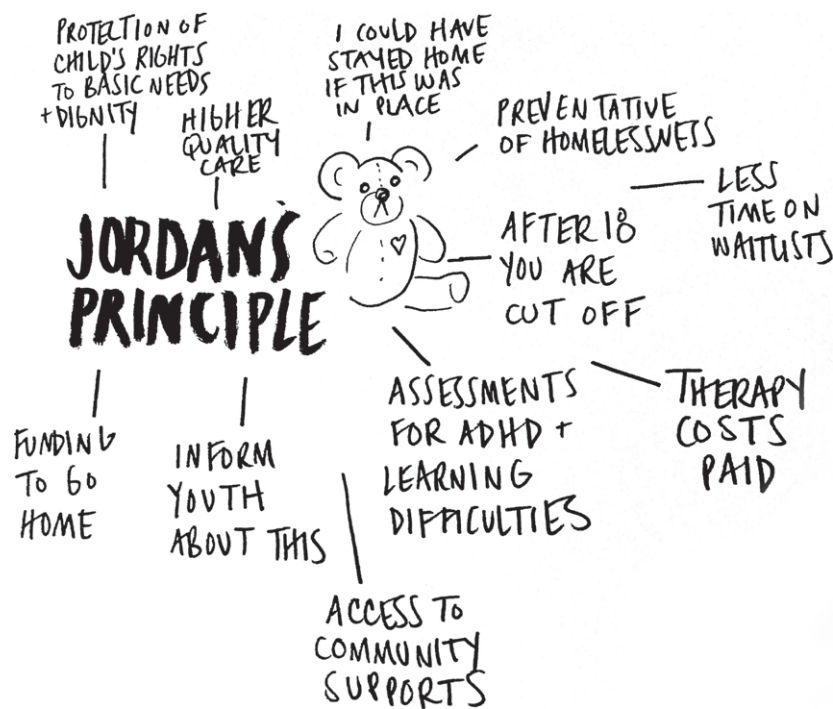 PROTECTION OF
CHILD'S RIGHTS
TO BASIC NEEDS
+ DIGNITY
HIGHER
QUALITY
CARE
I COULD HAVE
STAYED HOME
IF THIS WAS
IN PLACE
PREVENTATIVE
OF HOMELESSNESS
LESS
TIME ON
WAITLISTS
JORDAN'S
PRINCIPLE
AFTER 18
YOU ARE
CUT OFF
FUNDING
TO GO
HOME
INFORM
YOUTH
ABOUT THIS
ASSESSMENTS
FOR ADHD +
LEARNING
DIFFICULTIES
THERAPY
COSTS
PAID
ACCESS TO
COMMUNITY
SUPPORTS